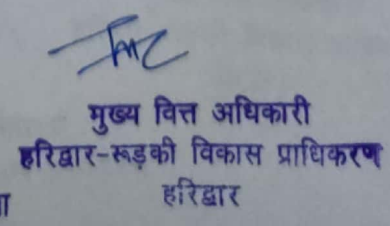 मुख्य वित्त अधिकारी
हरिद्वार-रूड़की विकास प्राधिकरण
हरिद्वार